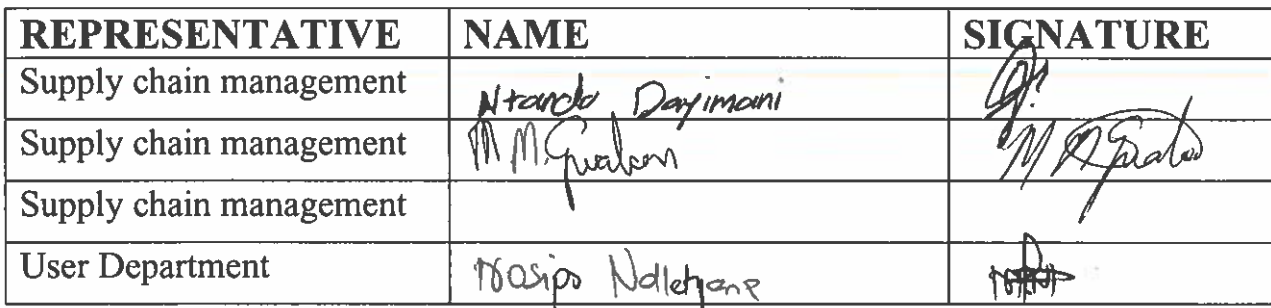 REPRESENTATIVE NAME SIGNATURE
Supply chain management Ntando Dayimani
Supply chain management M M
Supply chain management
User Department Nosipo Ndletyana